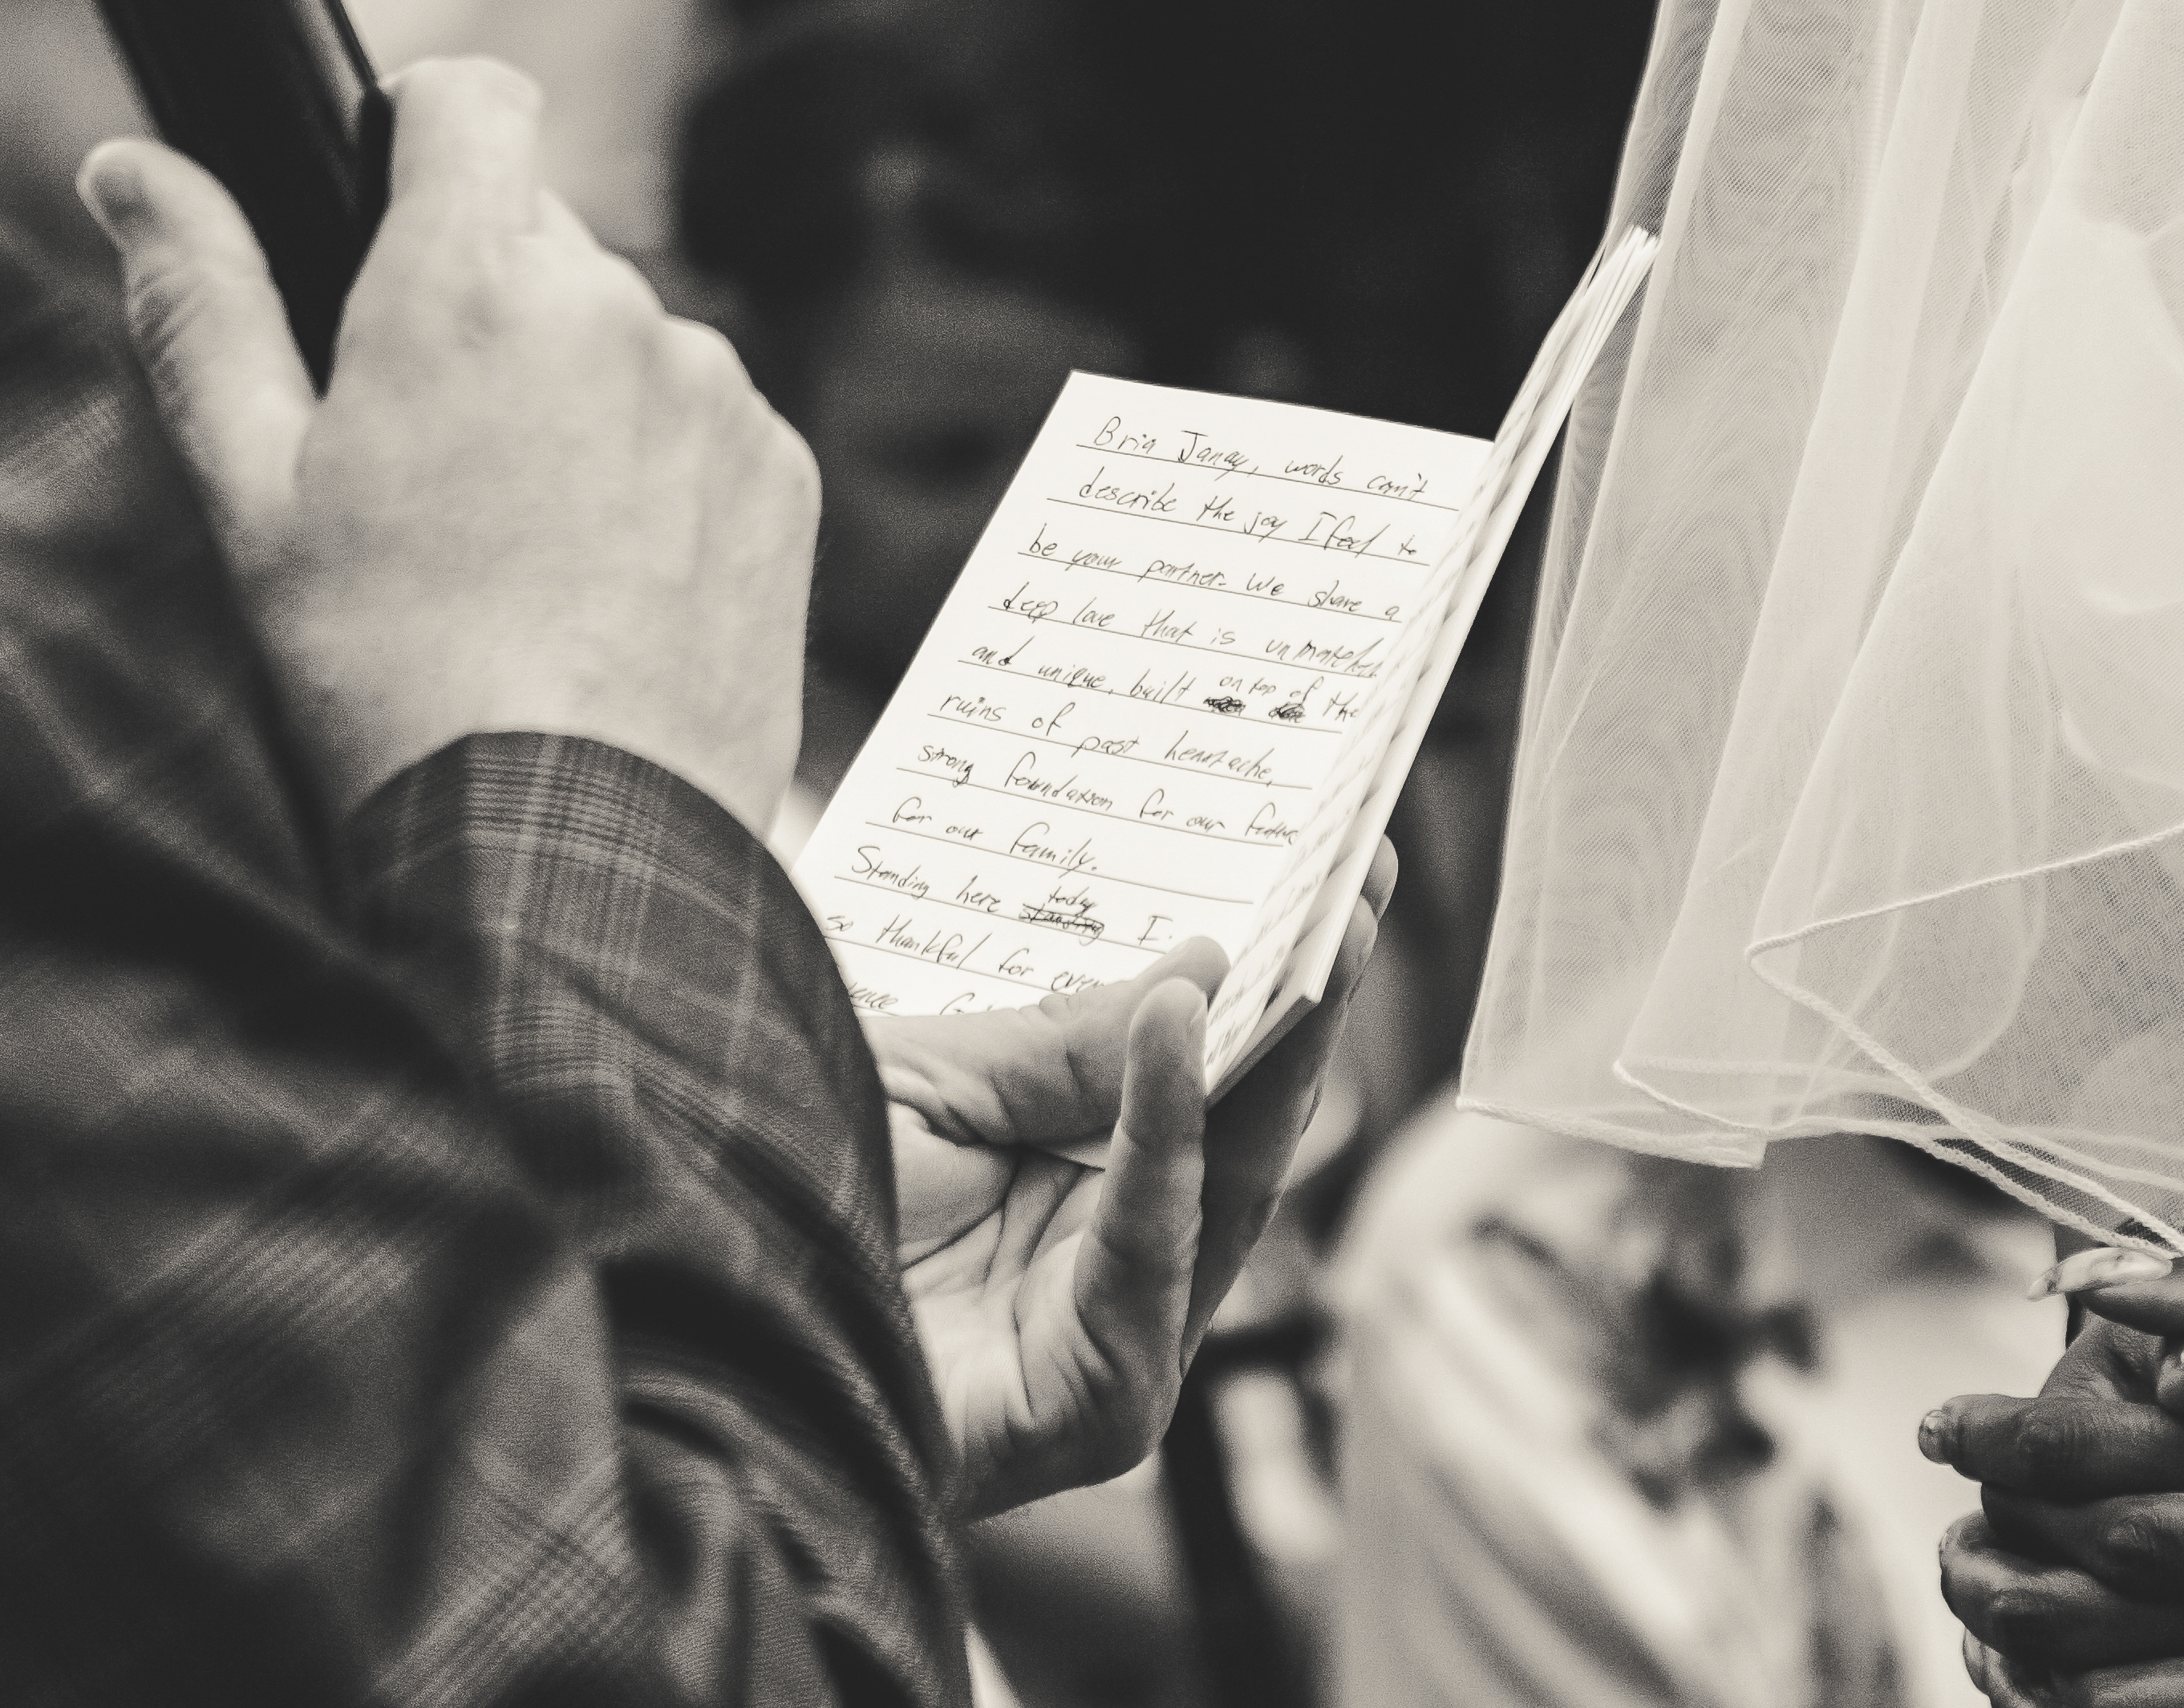 Bria Janay, words can't
describe the joy I feel to
be your partner. We share a
deep love that is unmatched
and unique, built on top of the
ruins of past heartache,
strong foundation for our future
for our family.
Standing here today I
so thankful for